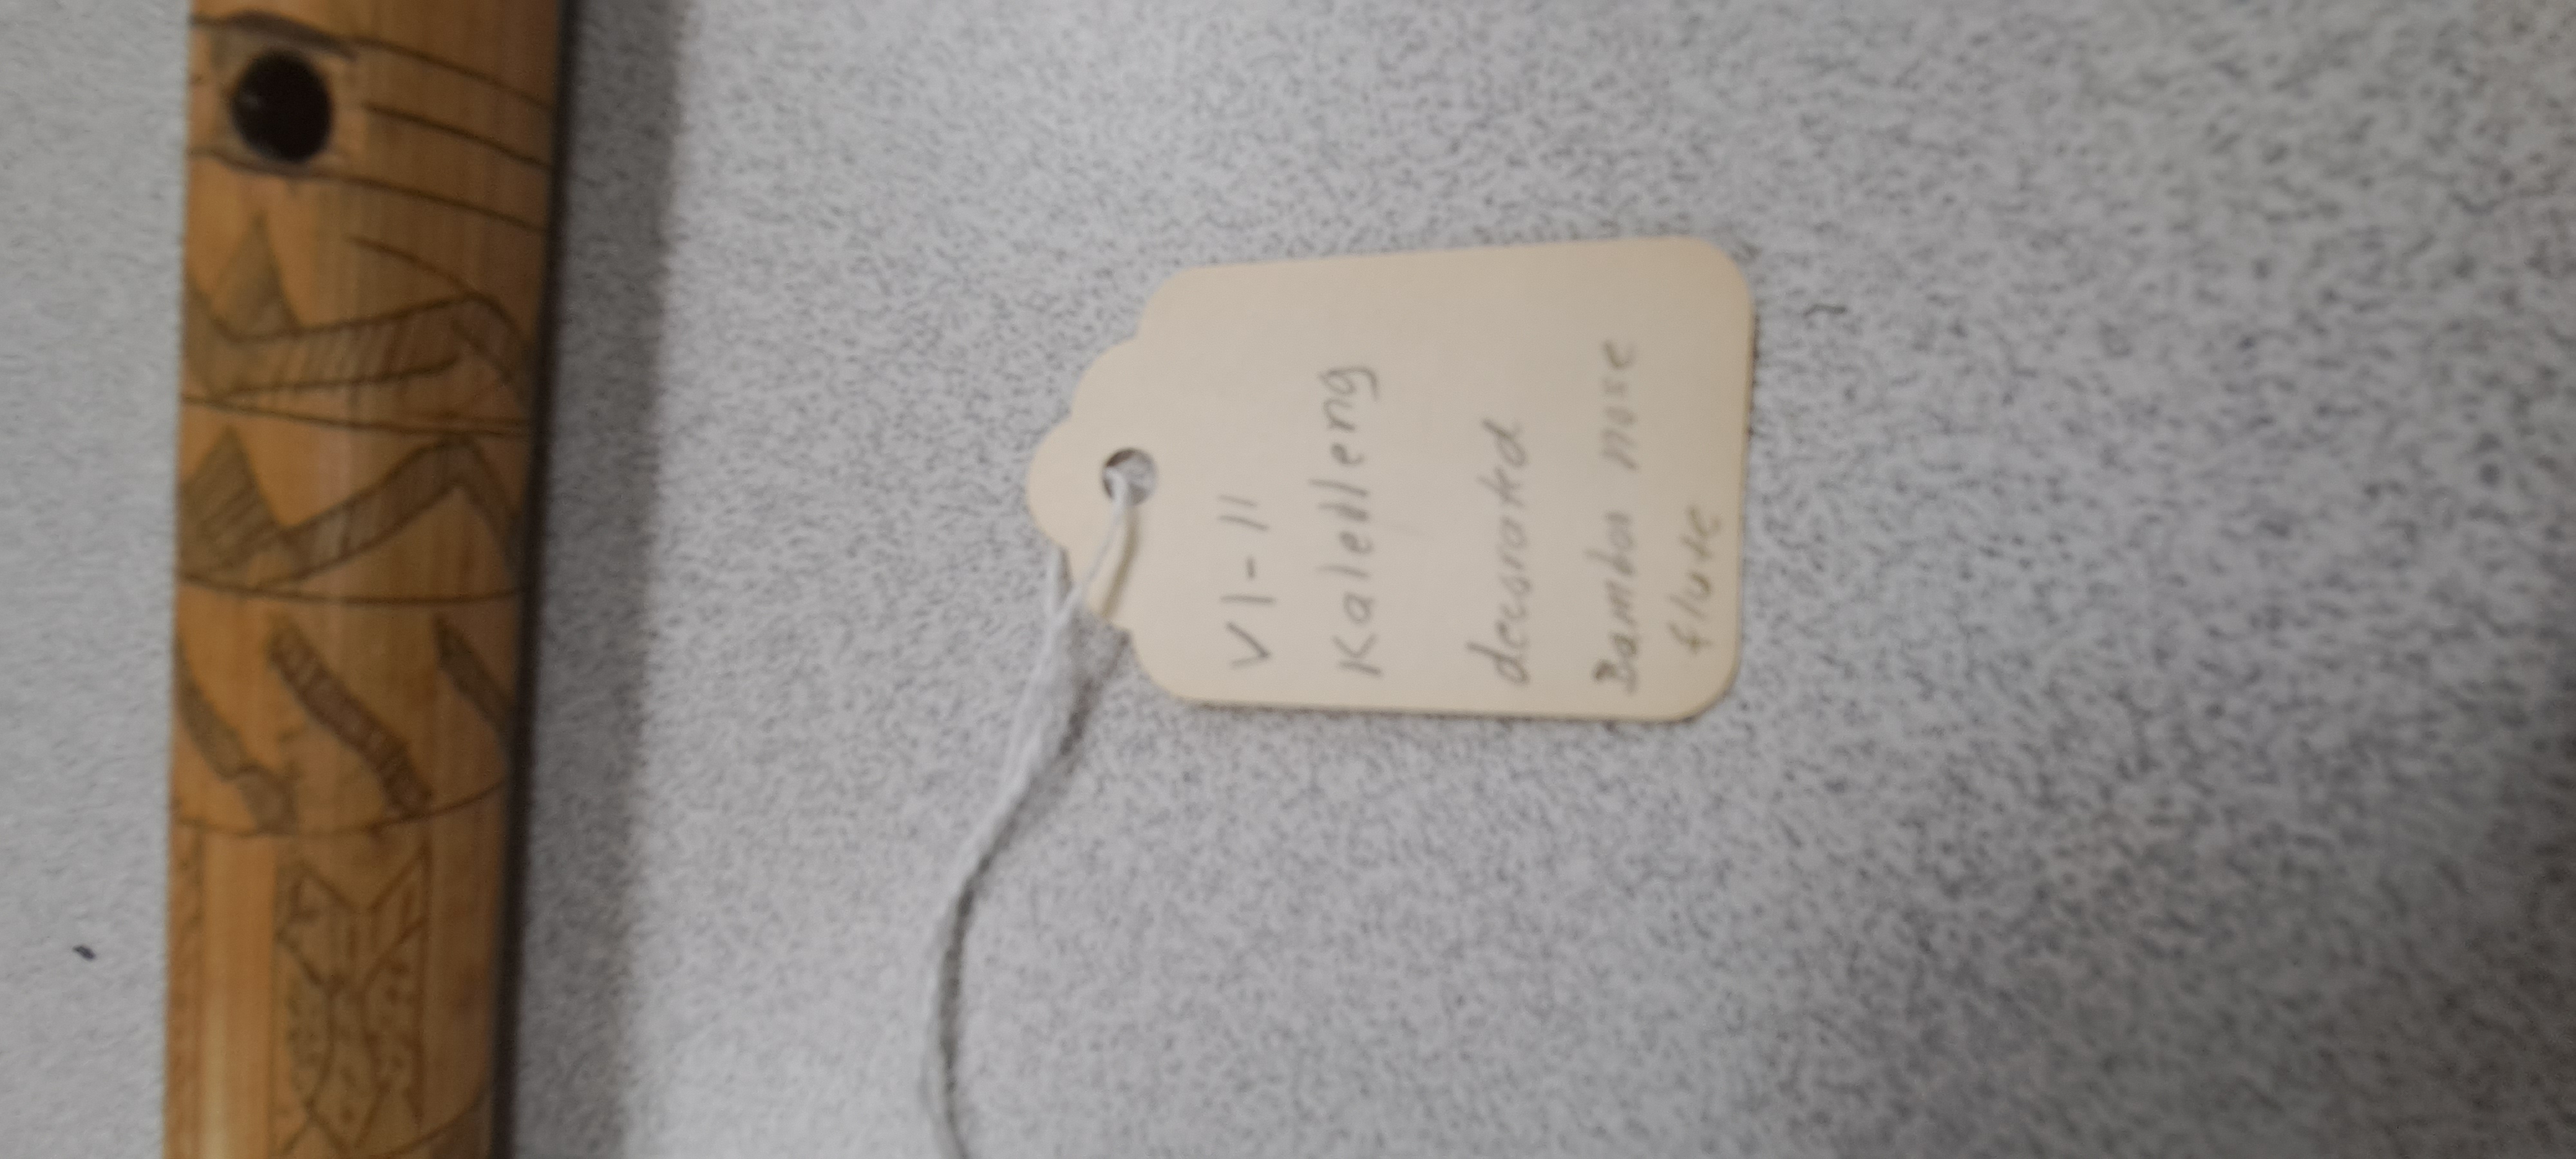 VI-11
Kaleleng
decorated
Bamboo nose
flute